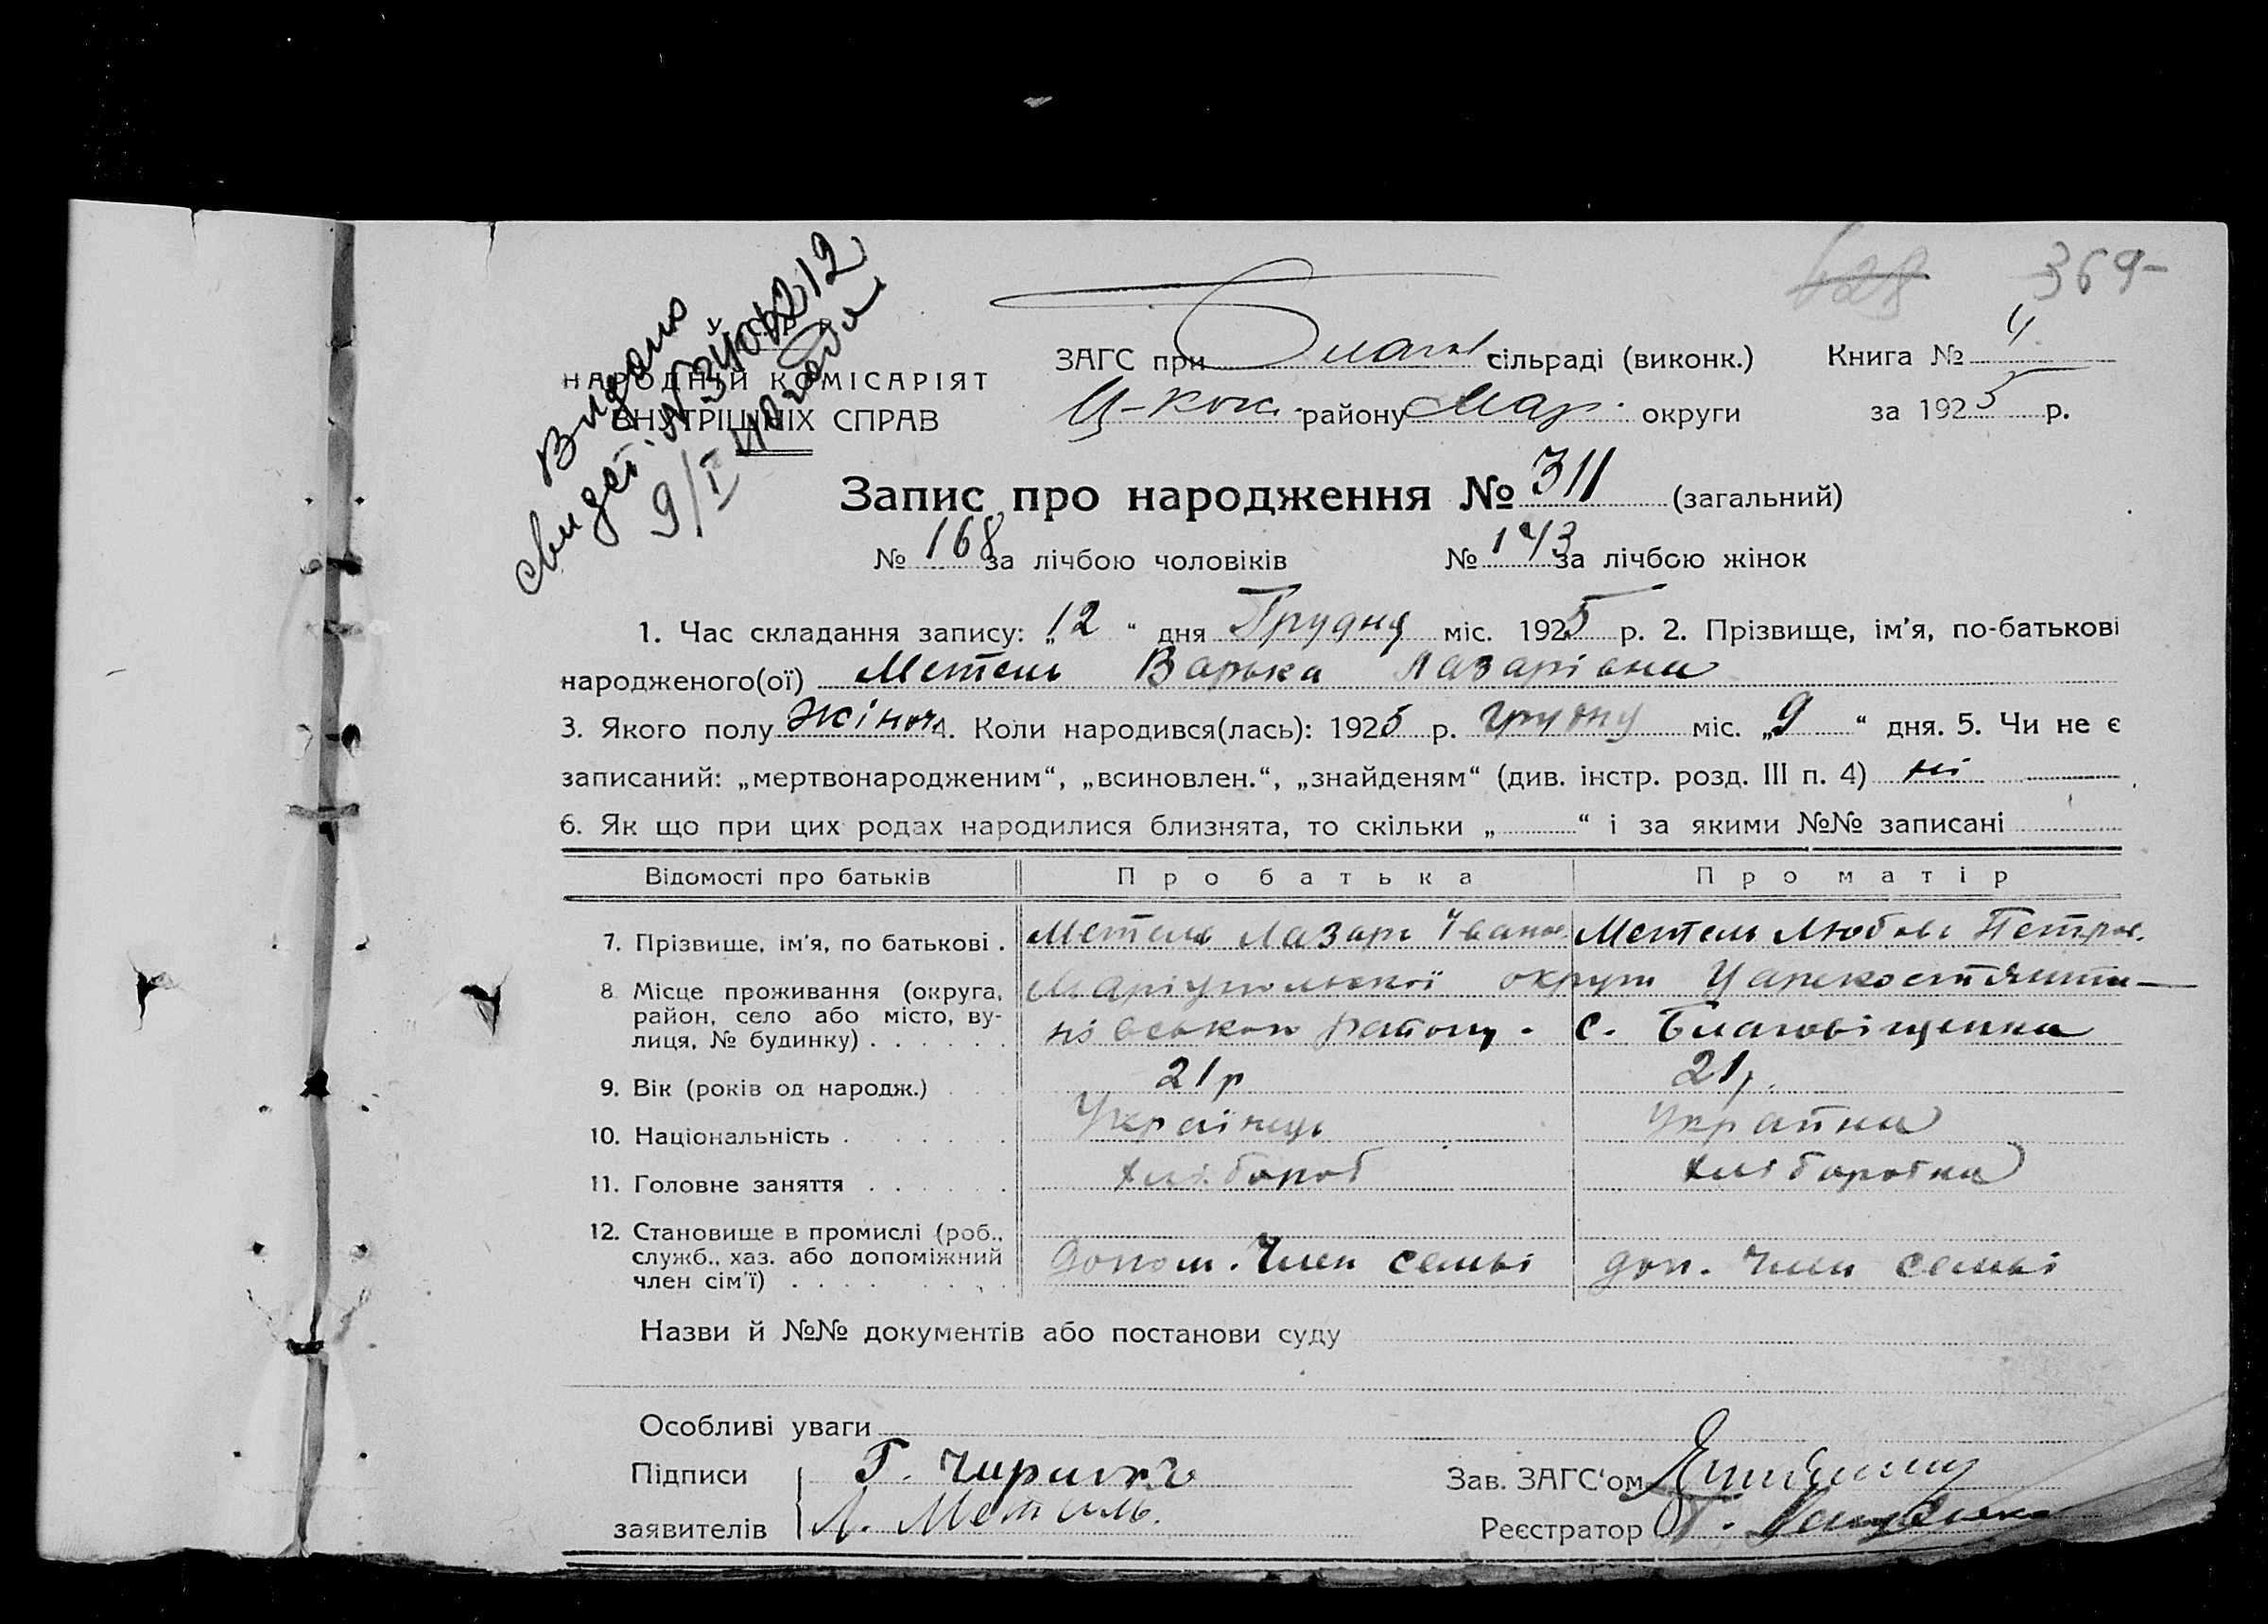 369-
Видано
свидет. №
9/I 40 года
НАРОДНІЙ КОМІСАРІЯТ
ВНУТРІШНІХ СПРАВ
ЗАГС при Благов. сільраді (виконк.) Книга № 4
Ц-Конс. району Мар. округи за 1925 р.
Запис про народження № 311 (загальний)
№ 168 за лічбою чоловіків № 143 за лічбою жінок
1. Час складання запису: „12“ дня Грудня міс. 1925 р. 2. Прізвище, ім'я, по-батькові
народженого(ої) Метель Варька Лазарівна
3. Якого полу жіноч 4. Коли народився(лась): 1925 р. грудня міс. „9“ дня. 5. Чи не є
записаний: „мертвонародженим“, „всиновлен.“, „знайденям“ (див. інстр. розд. III п. 4) ні
6. Як що при цих родах народилися близнята, то скільки „ “ і за якими №№ записані
Відомості про батьків Про батька Про матір
7. Прізвище, ім'я, по батькові . Метель Лазарь Іванов. Метель Любовь Петров.
8 Місце проживання (округа, район, село або місто, вулиця, № будинку) . . . . . . Маріупольської округи Царекостянти-
нівського району. с. Благовіщенка
9. Вік (років од народж.) . . . 21 р 21 р.
10. Національність . . . . . . Українець Українка
11. Головне заняття . . . . . . хлібороб хлібаробка
12. Становище в промислі (роб., служб., хаз. або допоміжний член сім'ї) . . . . . . Допом. член семьі доп. член семьі
Назви й №№ документів або постанови суду
Особливі уваги
Підписи Г.
заявителів Л. Метель.
Зав. ЗАГС'ом
Реєстратор Г.